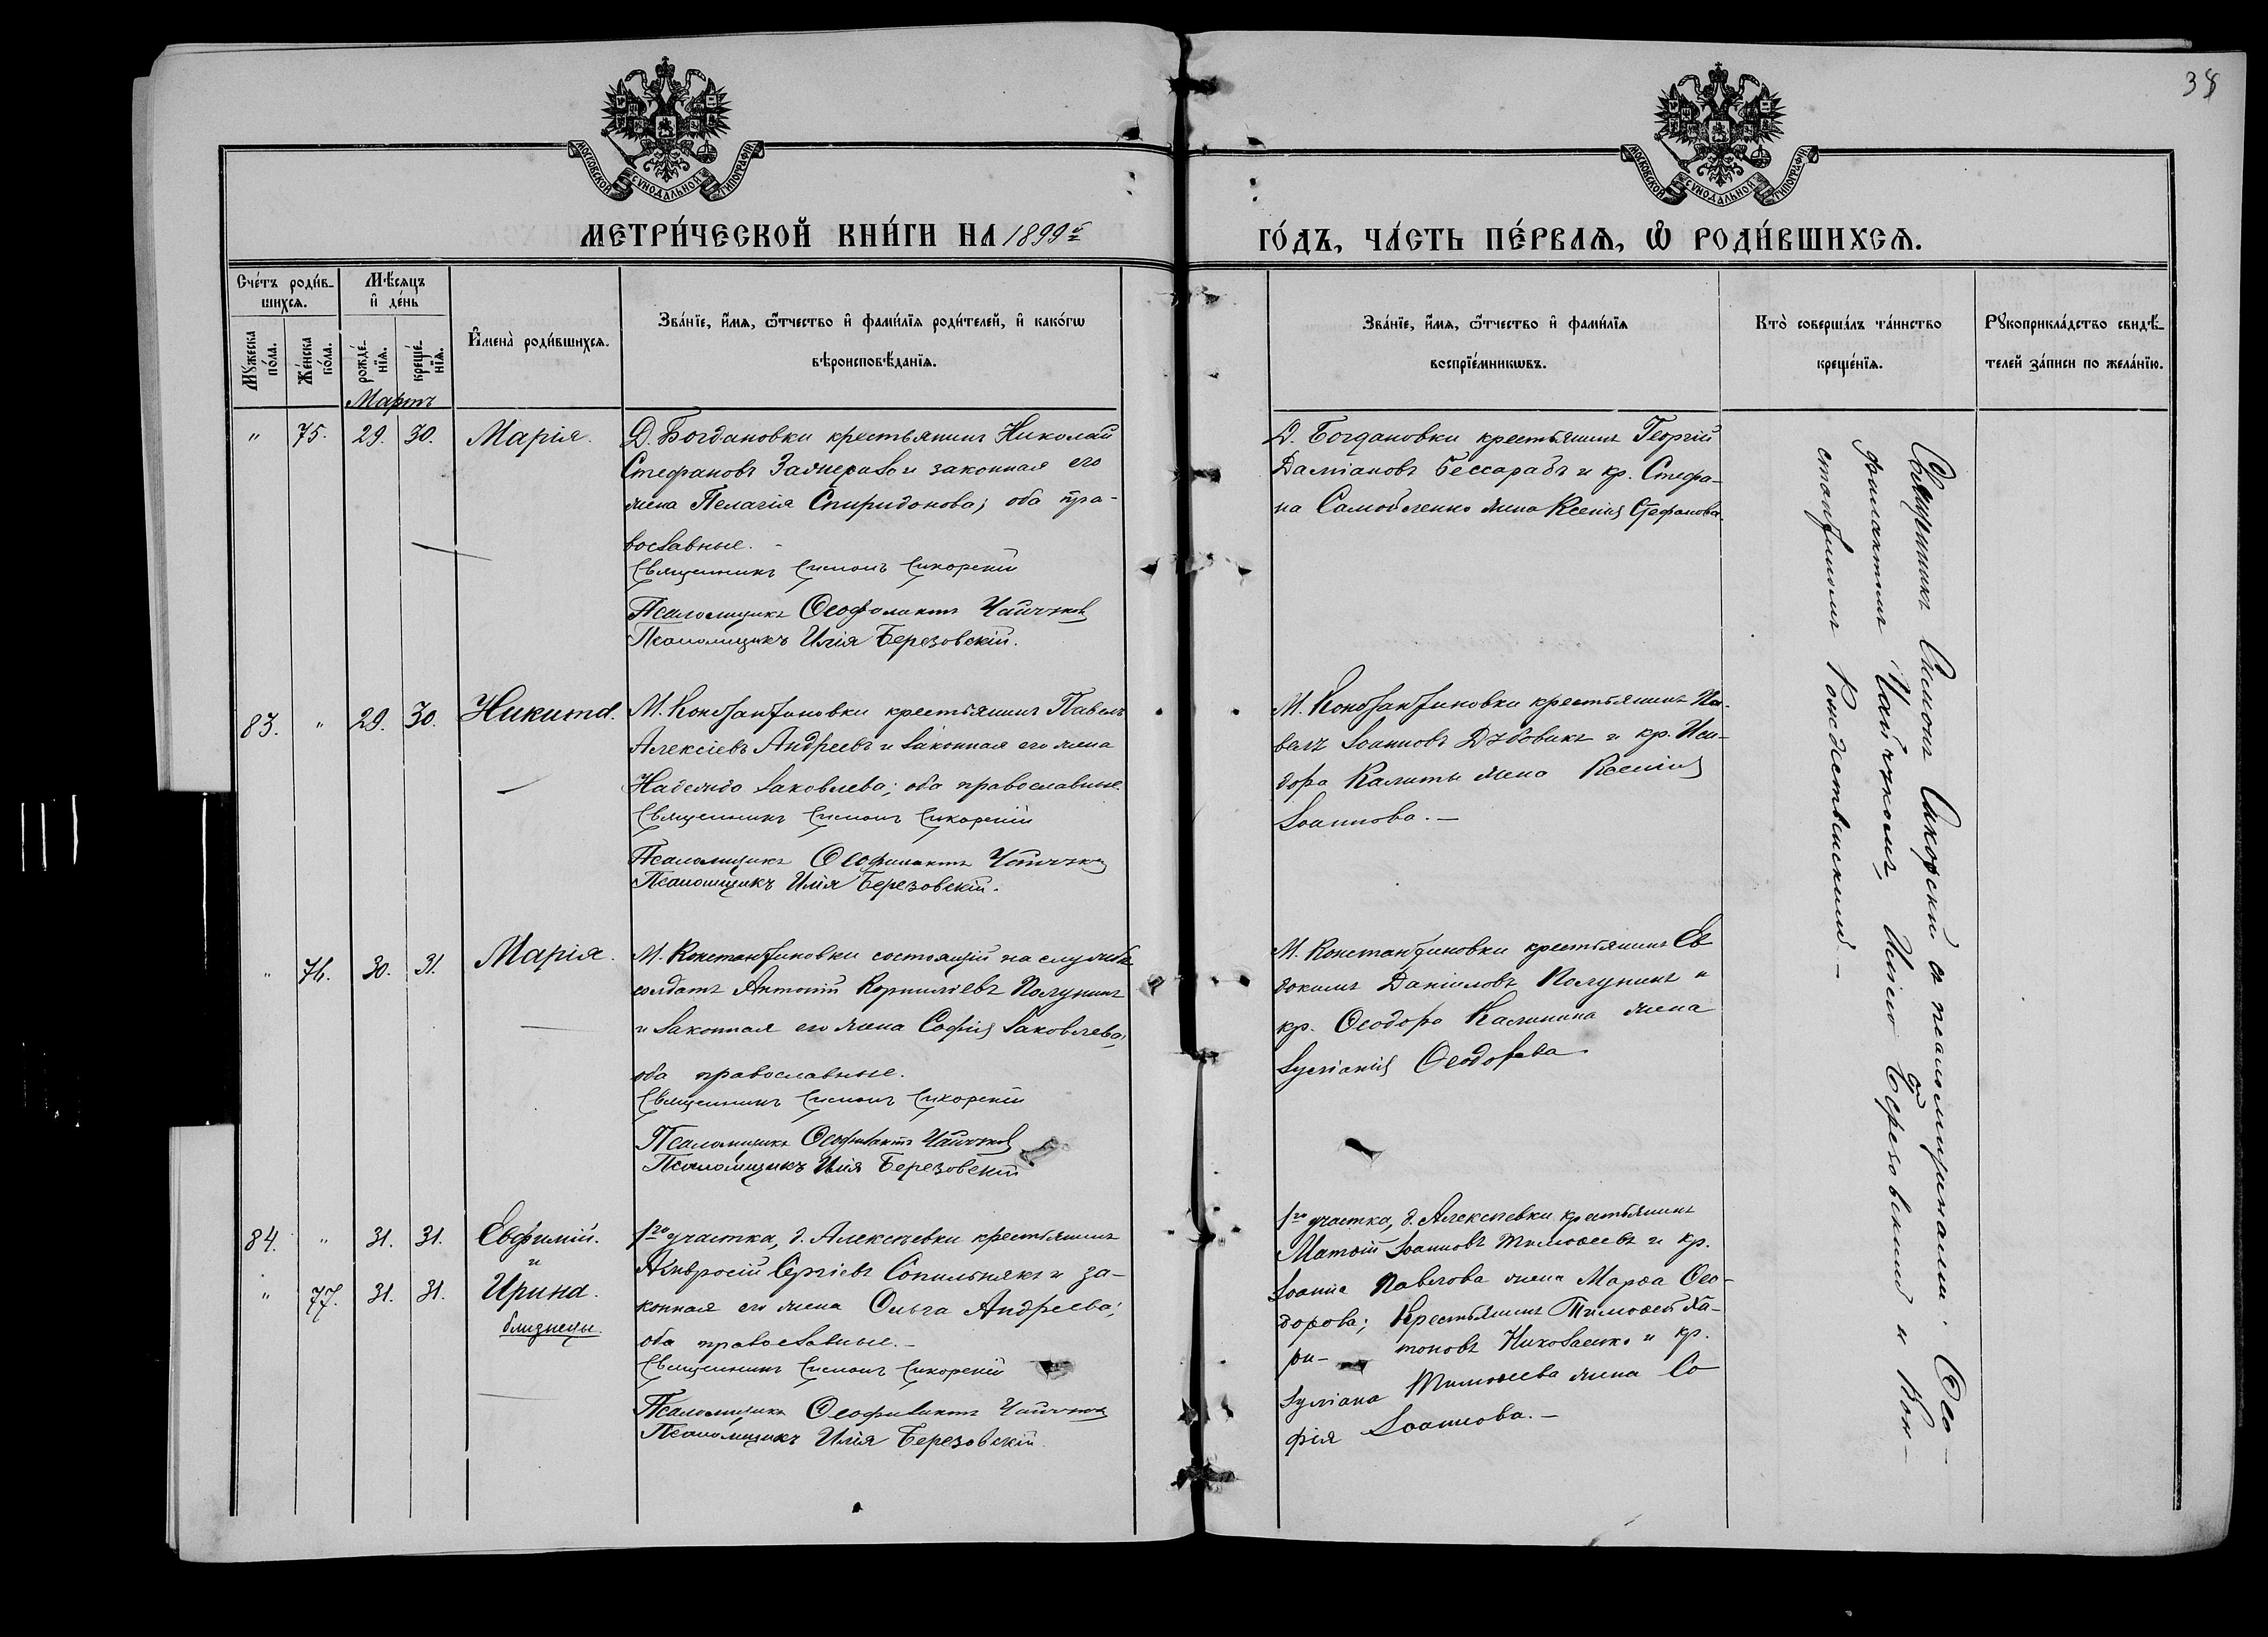 38
МОСКОВСКОЙ СѴНОДАЛЬНОЙ ТИПОГРАФІИ
МОСКОВСКОЙ СѴНОДАЛЬНОЙ ТИПОГРАФІИ
МЕТРИ́ЧЕСКОЙ КНИ́ГИ НА 1899й
ГО́ДЪ, ЧА́СТЬ ПЕ́РВАѦ, Ѡ РОДИ́ВШИХСѦ.
Сче́тъ роди́в-
шихсѧ.
Мꙋ́жеска по́ла.
Же́нска по́ла.
Мѣ́сѧцъ
и҆ де́нь
рожде́-нїѧ.
креще́-нїѧ.
И҆мена̀ роди́вшихсѧ.
Зва́нїе, и҆́мѧ, ѻ҆́тчество и҆ фами́лїѧ роди́телей, и҆ како́гѡ
вѣроисповѣ́данїѧ.
Зва́нїе, и҆́мѧ, ѻ҆́тчество и҆ фами́лїѧ
воспрїе́мникѡвъ.
Кто̀ соверша́лъ та́инство
креще́нїѧ.
Рꙋкоприкла́дство свидѣ́-
телей за́писи по жела́нїю.
Мартъ
" 75. 29. 30. Марія.
Д. Богдановки крестьянинъ Николай
Стефановъ и законная его
жена Пелагія Спиридонова; оба пра-
вославные. -
Священникъ Симонъ Сикорскій
Псаломщикъ Ѳеофилактъ Чайчукъ
Псаломщикъ Илія Березовскій.
Д. Богдановки крестьянинъ Георгій
Даміановъ Бессарабъ и кр. Стефа-
на Самойленко жена Ксенія Стефанова.
83. " 29. 30. Никита.
М. Константиновки крестьянинъ Павелъ
Алексіевъ Андреевъ и законная его жена
Надежда Іаковлева; оба православные.
Священникъ Симонъ Сикорскій
Псаломщикъ Ѳеофилактъ Чайчукъ
Псаломщикъ Илія Березовскій.
М. Константиновки крестьянинъ Па-
велъ Іоанновъ Дубовикъ и кр. Иси-
дора Калиты жена Ксенія
Іоаннова. —
" 76. 30. 31. Марія.
М. Константиновки состоящій на службѣ
солдатъ Антоній Корниліевъ Полунинъ
и законная его жена Софія Іаковлева;
оба православные.
Священникъ Симонъ Сикорскій
Псаломщикъ Ѳеофилактъ Чайчукъ
Псаломщикъ Илія Березовскій
М. Константиновки крестьянинъ Ев
докимъ Даніиловъ Полунинъ и
кр. Ѳеодора Калинина жена
Іуліанія Ѳеодорова
84. " 31. 31. Евфимій.
и
" 77. 31. 31. Ирина.
близнецы.
1го участка, д. Алексѣевки крестьянинъ
Амвросій Сергіевъ Сопильнякъ и за-
конная его жена Ольга Андреева;
оба православные. -
Священникъ Симонъ Сикорскій
Псаломщикъ Ѳеофилактъ Чайчукъ
Псаломщикъ Илія Березовскій
1го участка, д. Алексѣевки крестьянинъ
Матѳій Іоанновъ Тимоѳеевъ и кр.
Іоанна Павлова жена Марѳа Ѳео-
дорова; Крестьянинъ Тимоѳей Ха-
ри- тоновъ Николаенко и кр.
Іуліана Тимоѳеева жена Со
фія Іоаннова. —
Священникъ Симонъ Сикорскій съ псаломщиками: Ѳео-
филактомъ Чайчукомъ, Иліею Березовскимъ и Кон-
стантиномъ Рождественскимъ. —